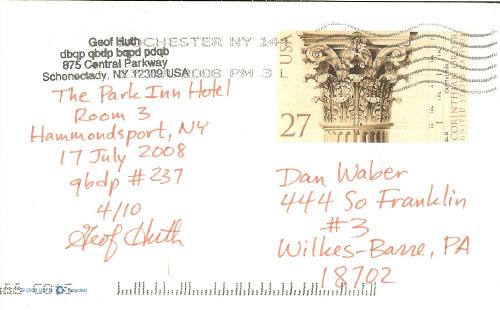 Geof Huth
dbqp qbdp bqpd pdqb
875 Central Parkway
Schenectady, NY 12309/USA
ROCHESTER NY 14
2008 PM 3 L
The Park Inn Hotel
Room 3
Hammondsport, NY
17 July 2008
qbdp #237
4/10
Geof Huth
USA
27
CORINTHIAN
Dan Waber
444 So Franklin
#3
Wilkes-Barre, PA
18702
Recycled